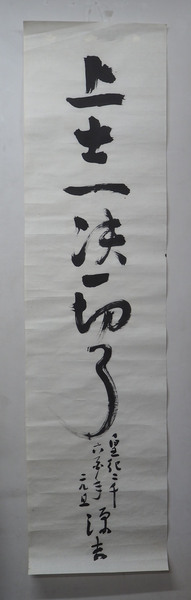 上士一决一切了
皇紀二千
六百
元旦 源吉